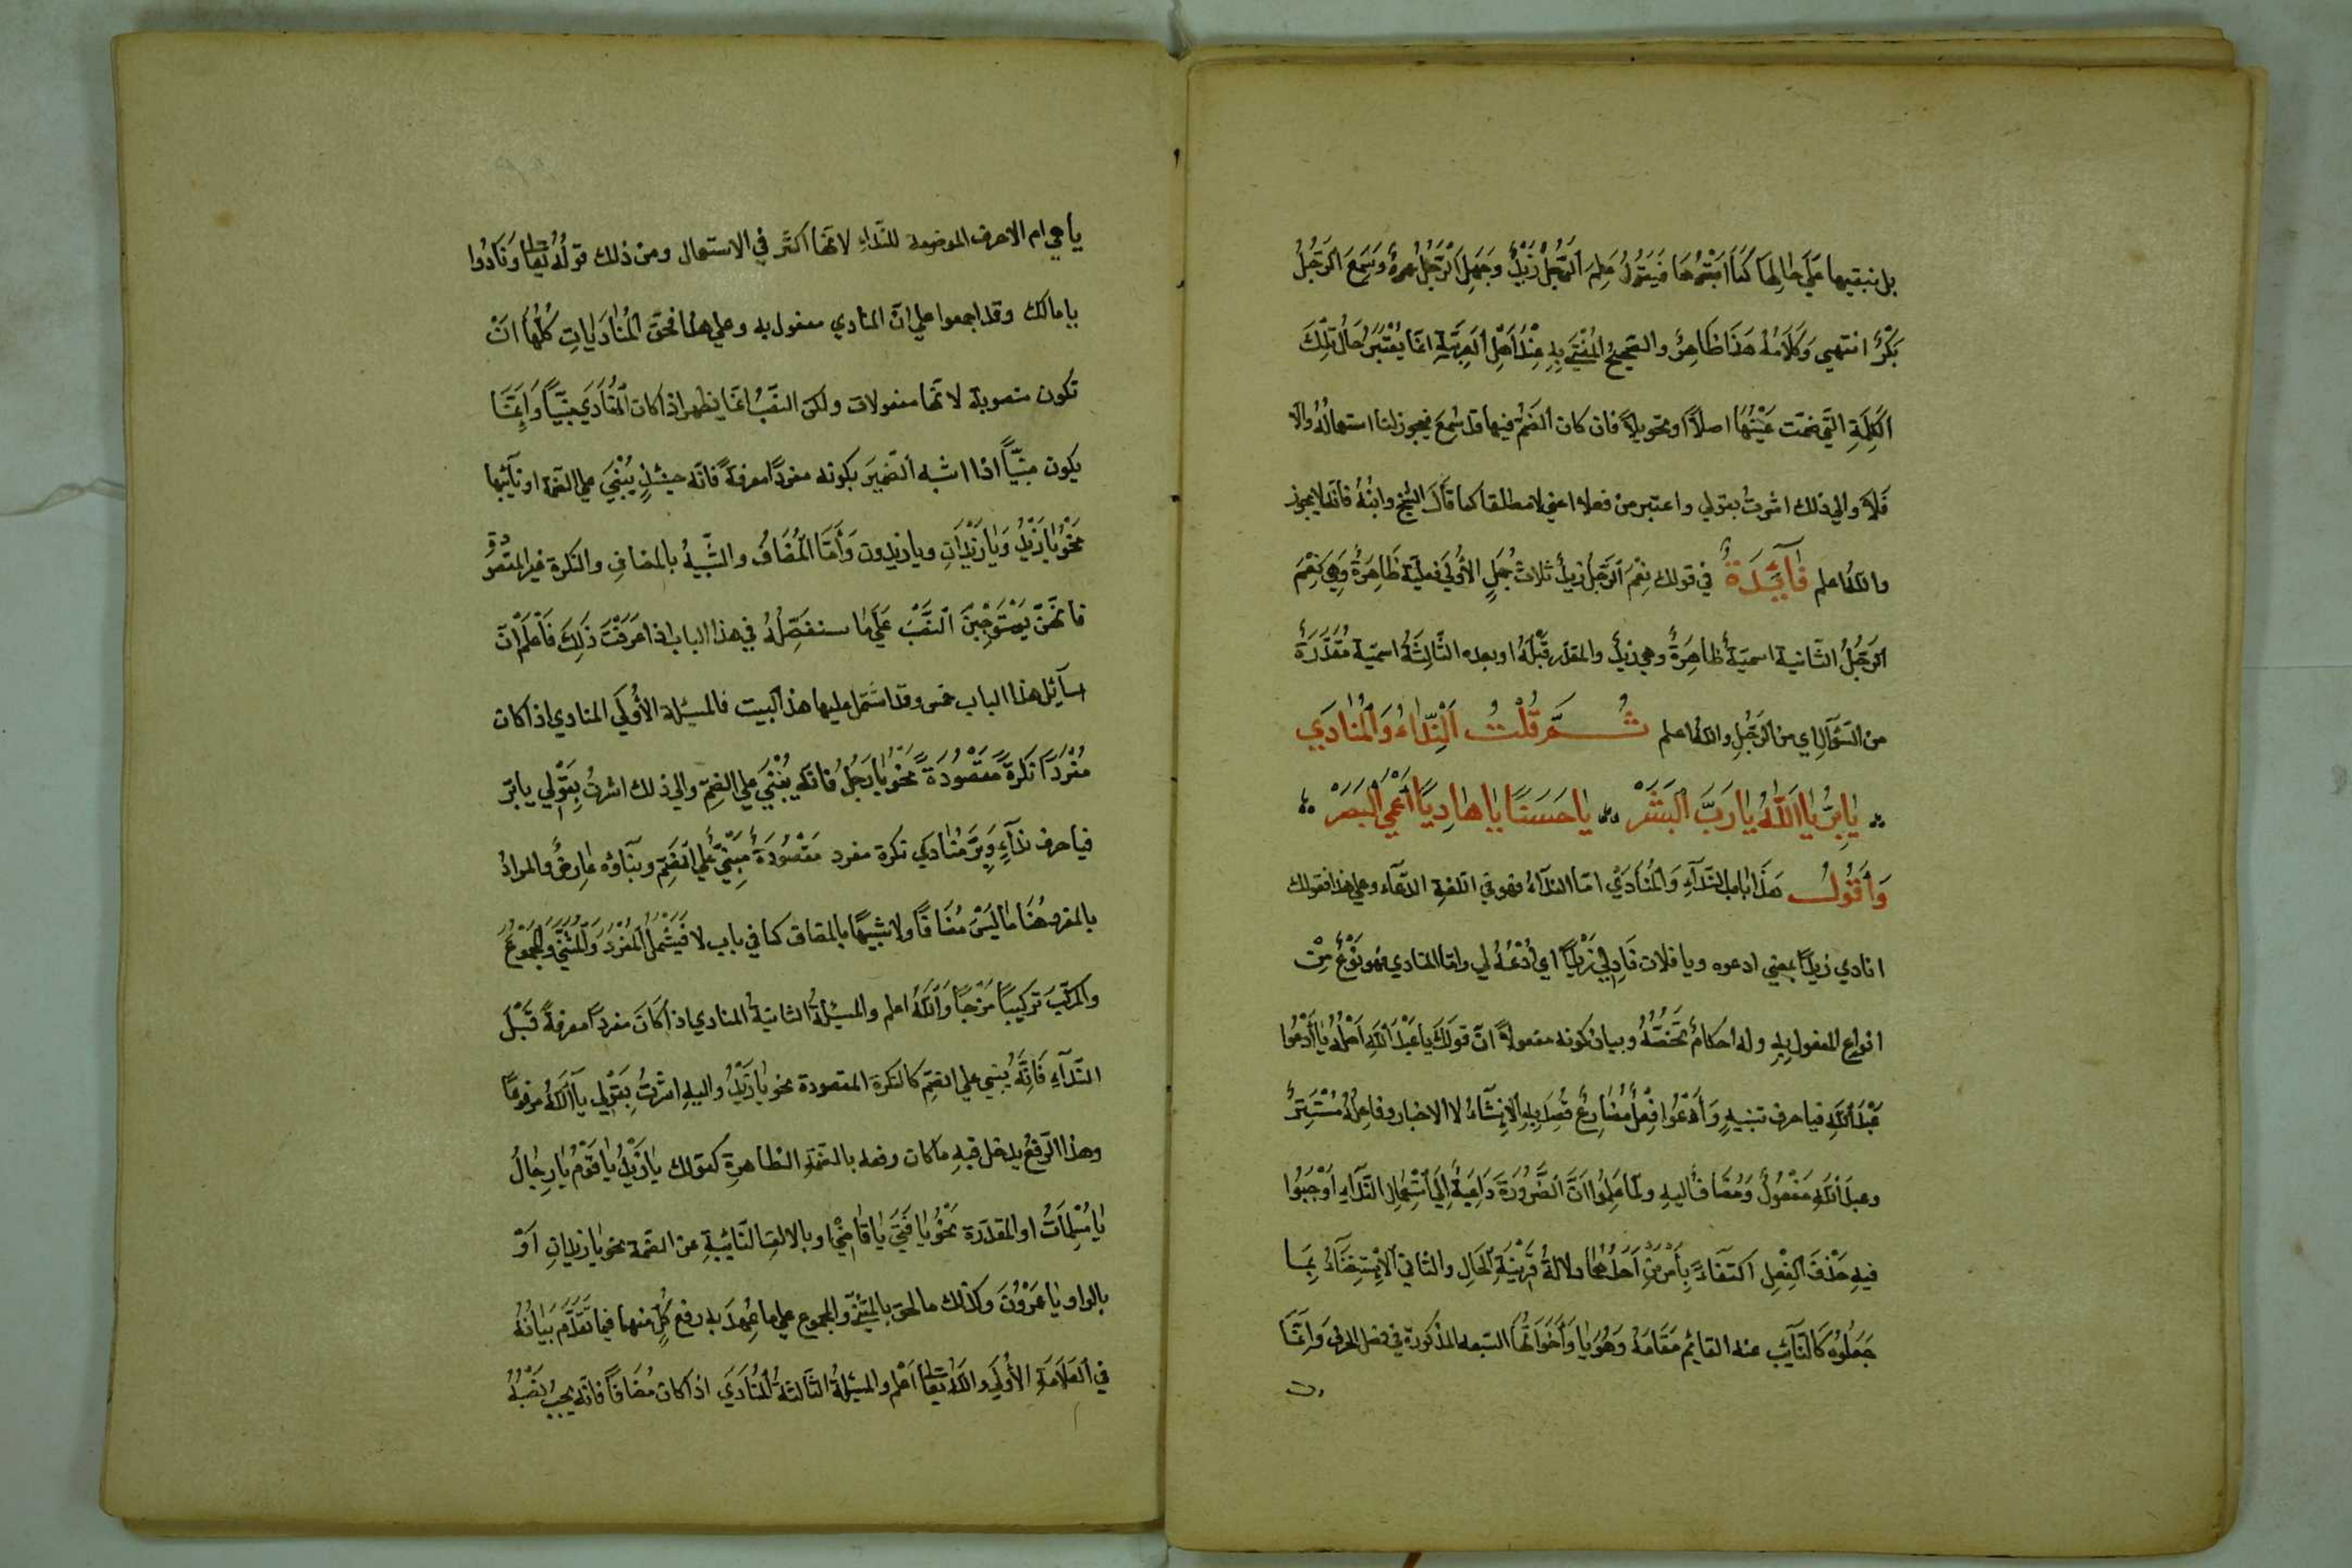 بل نبقيها عَلَي حَالِهَا كَمَا ابنتُهَا فَيَقُولُ عَلِمَ الرَّجُلُ زَيْدٌ وَجَهِلَ الرَّجُلُ عمروٌ وَسَمِعَ الرَّجُلُ
بَكْرٌ انتهي وَكَلَامُهُ هَذَا ظَاهِرٌ والصَّحِيحُ المُفْتَي بِهِ عِنْدَ اَهْلِ العَرَبِيَّةِ انَّمَا يُعْتَبَرُ حَالُ تِلْكَ
الكَلِمَةِ الَّتي ضمّت عَيْنُهَا اصلاً او تحويلاً فان كان الضَّمُّ فيها قد سُمِعَ فيجوز لنا استعمالُهُ والا
فَلَا والي ذلك اشرتُ بقولي واعتبر من فعلا اعني لا مطلقا كما قَالَ الشيخ وابنُهُ فانّه لا يجوز
والله اعلم فَآئِدَةٌ في قولك نِعْمَ الرَّجُلُ زيدٌ ثلاث جُمَلٍ الأُولَي فعليّة ظَاهِرَةٌ وَهِيَ نِعْمَ
الرَّجُلُ الثّانية اسميّةٌ ظاهِرَةٌ وهي زيدٌ والمقدّر قَبْلَهُ او بعده الثَّالِثَةُ اسميّة مُقَدَّرَةٌ
من السّؤالِ اي من الرَّجُلِ والله اعلم ثُمَّ قُلْتُ اَلنِّدَاءُ وَالْمُنَادَي
يَا بِرُّ يَا اَللّٰهُ يَا رَبَّ الْبَشَرْ يَا حَسَنًا يَا هَادِيًا اَعْمَي الْبَصَرْ
وَأَقُولُ هَذَا بَاب النِّدَآءِ وَالْمُنَادَي امّا النّدَآءُ فهو في اللّغةِ الدّعَآء وعلي هذا فقولك
انادي زيدًا بمعني ادعوه ويا فلان نَادِ لي زَيْدًا اي اُدْعُهُ لي وامّا المنادي فهو نَوْعٌ مِنْ
انواع المفعول بِهِ وله احكامٌ تَخُصُّهُ وبيان كونه مفعولاً انّ قولَكَ يا عَبْدَ اللّٰهِ اَصْلُهُ يَا اَدْعُوا
عَبْدَ اللّٰهِ فيا حرف تنبيهٍ وَأَدْعُوا فِعْلٌ مُضَارِعٌ قُصِدَ بِهِ الاِنْشَآءُ لا الاخبار وفاعِلُهُ مُسْتَتِرٌ
وعبدَ اللّٰهِ مَفْعُولٌ وَمُضَافٌ اليهِ ولَمَّا عَلِمُوا انَّ الضَّرُورَةَ دَاعِيَةٌ اِلَي اسْتِعْمَالِ النِّدَآءِ اَوْجَبُوا
فيهِ حَذْفَ الفِعْلِ اكتفَاءً بِأَمْرَيْنِ اَحَدُهُمَا دلالةُ قَرِيْنَةِ الحَالِ والثّاني الاِسْتِغْنَآءُ بِمَا
جَعَلُوْهُ كَالنّآئِبِ عنه القآئِمِ مَقَامَهُ وَهُوَ يَا وَأَخَوَاتُهَا السّبعه المذكورة في فصل الحرف وَاِنَّمَا
يا هي ام الاحرف الموضوعة للنّداءِ لانّها اكثر في الاستعمال ومن ذلك قولُهُ تعالي وَنَادَوْا
يا مالك وقد اجمعوا علي انّ المنادي مفعول به وعلي هذا فحقّ المُنَادَيَاتِ كُلِّهَا انْ
تكون منصوبة لانّها مفعولات ولكن النّصْبُ انّمَا يظهر اذا كان المُنَادَي مَبْنِيًّا وَاِنَّمَا
يكون مَبْنِيًّا اذا اشبه الضّمِيرَ بكونه مفردًا معرفةً فانّه حِينَئِذٍ يُبْنَي علي الضّمّ او نآئبها
نَحْوُ يَا زَيْدُ وَيَا زَيْدَانِ ويا زيدون وَأَمَّا المُضَافُ والشّبيهُ بالمضافِ والنّكرة غير المقصودة
فانّهنّ يَسْتَوْجِبْنَ النَّصْبَ عَلَي مَا سنفصّلهُ في هذا الباب اذا عَرَفْتَ ذَلِكَ فَاعْلَمْ اَنَّ
مسآئِل هذا الباب خمس وقد اشتمل عليها هذا البيت فالمسئلة الأُولَي المنادي اذا كان
مُفْرَدًا نكرةً مَقْصُودَةً نحوُ يَا رَجُلُ فانّه يُبْنَي علي الضمّ والي ذلك اشرتُ بِقَوْلي يا برّ
فيا حرف ندَآءٍ وَبِرّ مُنَادَي نكرة مفرد مَقْصُودَةٌ مَبْنِيٌّ علي الضّمِّ وبنَاؤُه عَارِضٌ والمرادُ
بالمفرد هُنَا مَا لَيْسَ مُضَافًا ولا شبيهًا بالمضاف كما في باب لا فَيَشْمَلُ الْمُفْرَدُ وَالْمُثَنَّي وَالْمَجْمُوْعَ
والمركّبَ تركيبًا مَزْجِيًّا وَاللّٰهُ اعلم والمسئلةُ الثانيةُ المنادي اذا كَانَ مفردًا معرفةً قَبْلَ
النّدَآءِ فَاِنَّهُ يُبني علي الضمّ كالنّكرة المقصودة نحو يَا زَيْدُ واليهِ اشرْتُ بِقَوْلي يآ اَللّٰهُ مرفوعًا
وهذا الرّفعُ يدخل فيهِ ما كان رفعه بالضمّةِ الظاهرةِ كقولك يَا زَيْدُ يَا قَوْمُ يَا رِجَالُ
يَا مُسْلِمَاتُ او المقدّرة نَحْوُ يَا فَتَي يَا قَاضِيْ او بالالفِ النّائِبةِ عن الضمّة نحو يا زيدانِ اَوْ
بالواو يَا عَمْرُوْنَ وكذلك ما لحق بالمثنّي والمجموع علي ما عُهِدَ به رفع كُلٍّ منهما فيما تَقَدَّمَ بَيَانُهُ
في العَلَامَةِ الأُولَي واللّٰهُ تعالي اعلم والمسئلةُ الثّالثةُ المُنَادَي اذا كان مُضَافًا فانّه يجبُ نَصْبُهُ